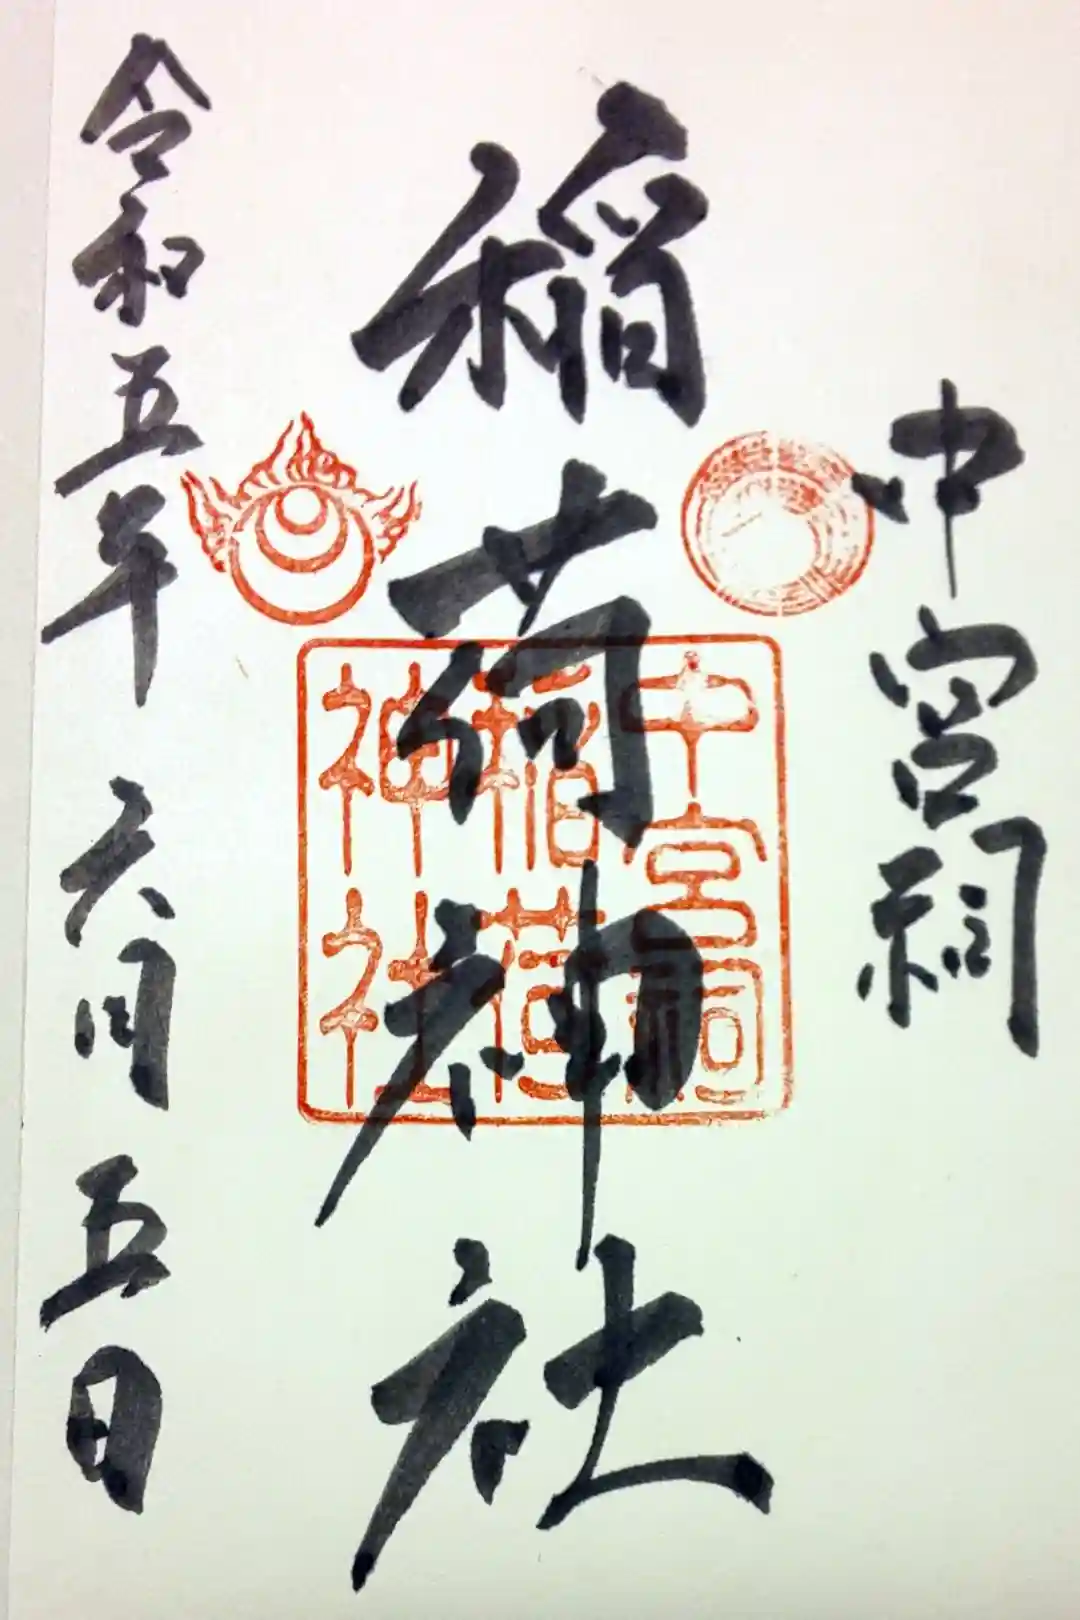 中宮祠
稲荷神社
令和五年六月五日
中宮祠
稲荷
神社